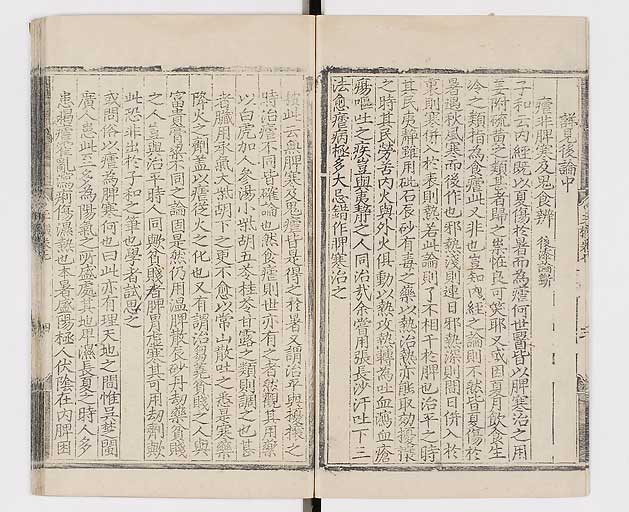 詳見後論中
瘧非脾寒及鬼食辨 後添論斷
子和云內經既以夏傷於暑而為瘧何世醫皆以脾寒治之用
姜附硫黃之類甚者歸之祟怪良可笑耶又或因夏月飲食生
冷之類指為食瘧此又非也豈知內經之論則不然皆夏傷於
暑遇秋風寒而後作也邪熱淺則連日邪熱深則間日併入於
裏則寒併入於表則熱若此論則了不相干於脾也治平之時
其民夷靜雖用砒石辰砂有毒之藥以熱治熱亦能取劾擾攘
之時其民勞苦內火與外火俱動以熱攻熱轉為吐血瀉血瘡
瘍嘔吐之疾豈與夷靜之人同治哉余嘗用張長沙汗吐下三
法愈瘧病極多大忌錯作脾寒治之
按此云無脾寒及鬼瘧皆是得之於暑又謂治平與擾攘之
時治瘧不同皆確論也然食瘧則世亦有之者然觀其用藥
以白虎加人參湯小柴胡五苓桂苓甘露之類則調之也甚
者臟用承氣大柴胡下之更不愈以常山散吐之悉是寒藥
降火之劑蓋以瘧從火之化也又有謂治芻蕘貧賤之人與
富貴膏粱不同之論固是然仍用溫脾散辰砂丹劫藥貧賤
之人豈與治平時人同歟貧賤者脾胃虛寒其可用劫劑歟
此恐非出於子和之筆也學者試思之
或問俗以瘧為脾寒何也曰此亦有理天地之間惟吳楚閩
廣人患此至多為陽氣之所盛處其地卑濕長夏之時人多
患暍瘧霍亂瀉痢傷濕熱也本暑盛陽極人伏陰在內脾困